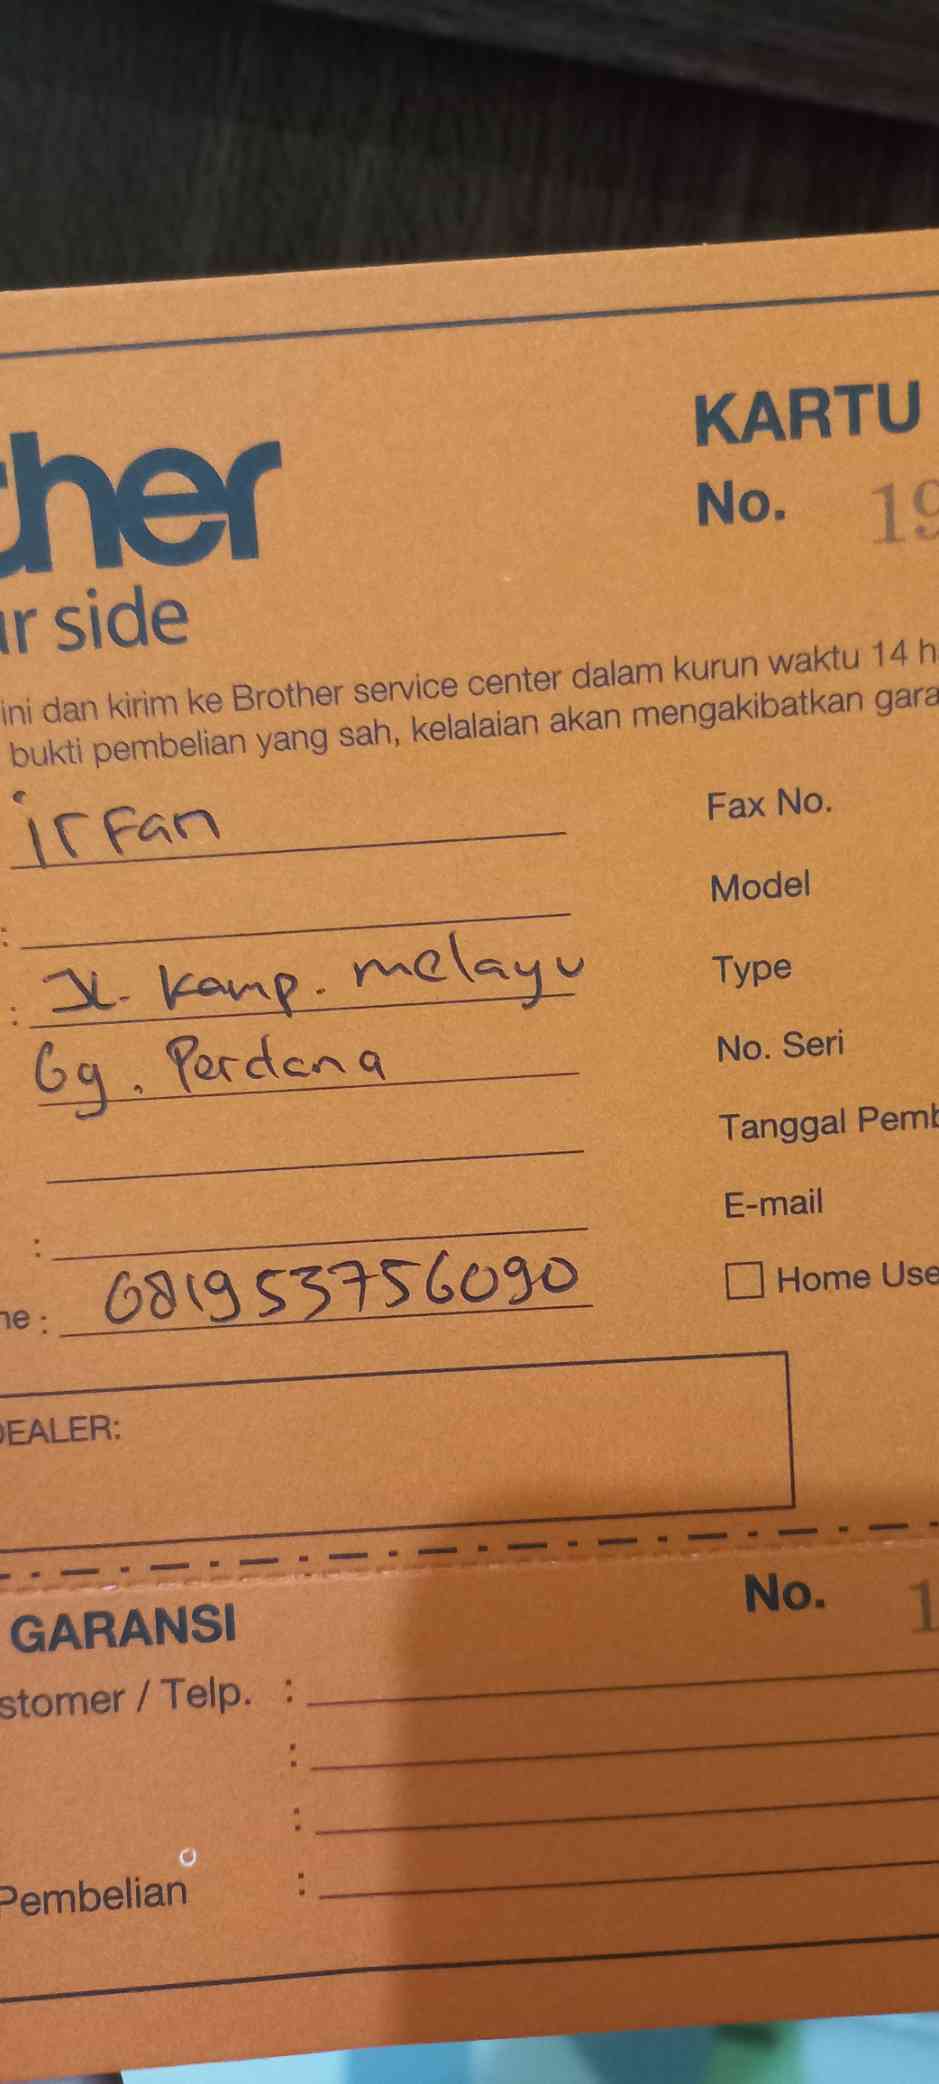 ther
ur side
KARTU
No. 19
ini dan kirim ke Brother service center dalam kurun waktu 14 h
bukti pembelian yang sah, kelalaian akan mengakibatkan gara
irFan
Fax No.
:
Model
: Jl. Kamp. melayu
Type
Gg. Perdana
No. Seri
Tanggal Pemb
:
E-mail
ne : 081953756090
Home Use
DEALER:
GARANSI
No. 1
stomer / Telp. :
:
:
Pembelian :